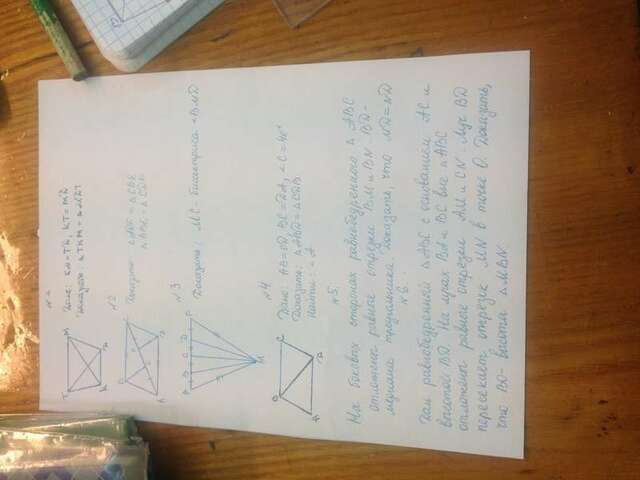 N 1
T M
Дано: KM=TD, KT=MD
K D
Доказать: △TKM=△MDT
N2
B C
Доказать △ADE=△CBE
△ABE=△CDE
A D
N 3
A B C D F
Доказать: MC-биссектриса ∠BMD
M
N 4
B C
Дано: AB=CD, BC=DA, ∠C=40°
Доказать: △ABD=△CDB
A D
Найти: ∠A
N5.
На боковых сторонах равнобедренного △ ABC
отложены равные отрезки BM и BN. BD-
медиана треугольника. Доказать, что ND=ND
N6.
Дан равнобедренный △ABC с основанием AC и
высотой BD. На лучах BA и BC вне △ABC
отложены равные отрезки AM и CN. Луч BD
пересекает отрезок MN в точке O. Доказать,
что BO- высота △MBN.